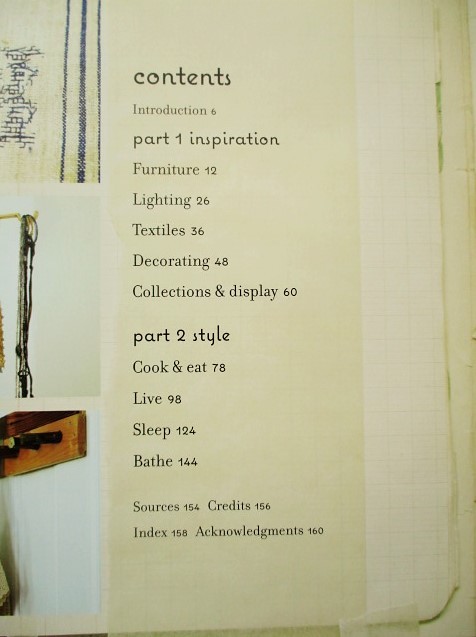 contents
Introduction 6
part 1 inspiration
Furniture 12
Lighting 26
Textiles 36
Decorating 48
Collections & display 60
part 2 style
Cook & eat 78
Live 98
Sleep 124
Bathe 144
Sources 154 Credits 156
Index 158 Acknowledgments 160